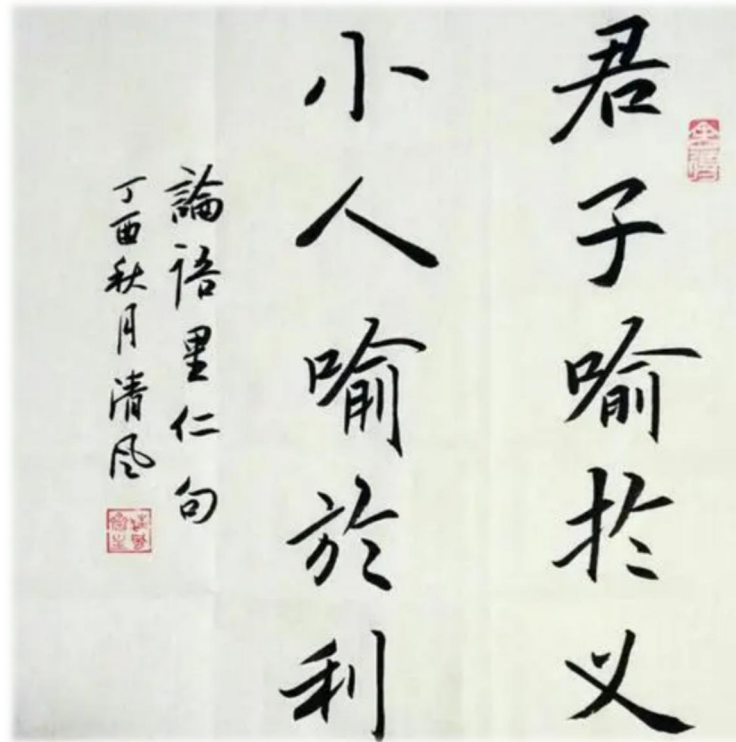 君子喻於义
小人喻於利
論語里仁句
丁酉秋月清风